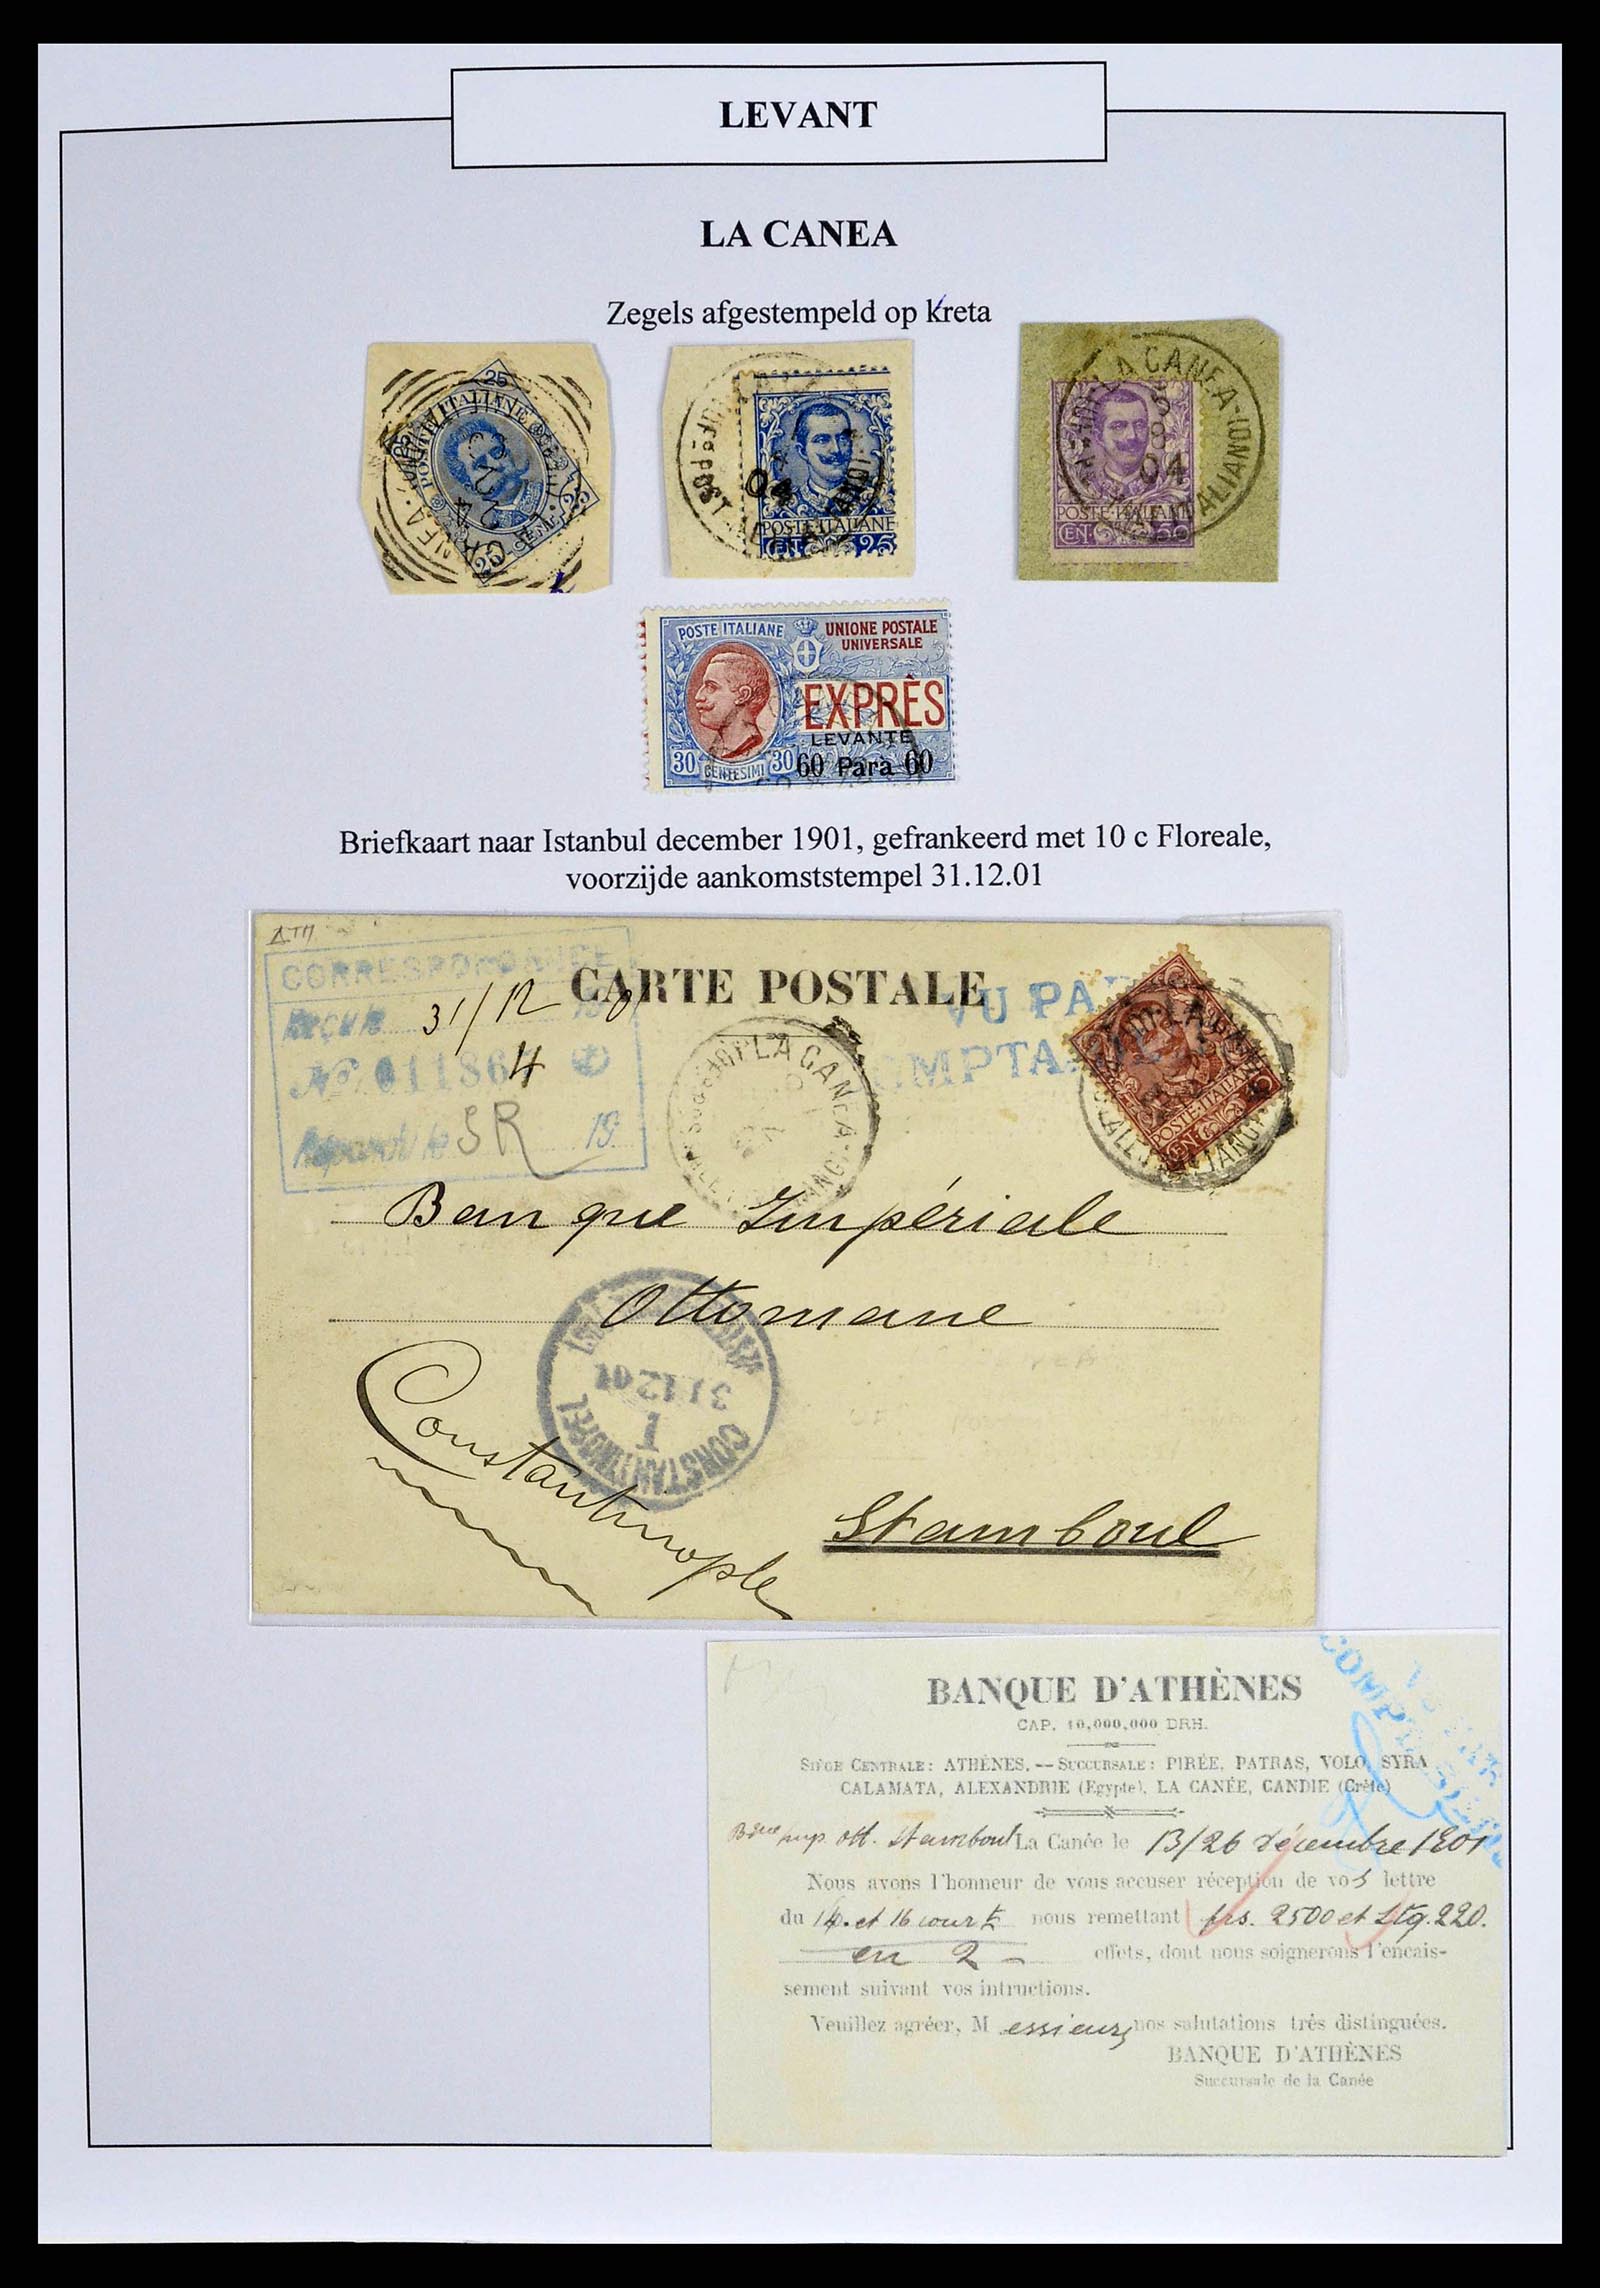 LEVANT
LA CANEA
Zegels afgestempeld op kreta
25
POSTE ITALIANE
25
25
25
CANEA
LA CANEA
04
POSTE·ITALIANE
CEN. 25
LA CANEA
8
04
POSTE·ITALIANE
CEN. 50
POSTE ITALIANE
UNIONE POSTALE
UNIVERSALE
EXPRÈS
LEVANTE
30 CENTESIMI 30
60 Para 60
Briefkaart naar Istanbul december 1901, gefrankeerd met 10 c Floreale,
voorzijde aankomststempel 31.12.01
CORRESPONDANCE
CARTE POSTALE
VU PAR
COMPTABILITÉ
Reçu le 31/12 1901
4
Répondu le SR 19
LA CANEA
LA CANEA
POSTE·ITALIANE
Banque Impériale
Ottomane
31 12 01
1
CONSTANTINOPEL
Constantinople
Stamboul
BANQUE D'ATHÈNES
CAP. 10,000,000 DRH.
SIÈGE CENTRALE: ATHÈNES.—SUCCURSALE: PIRÉE, PATRAS, VOLO, SYRA
CALAMATA, ALEXANDRIE (Egypte), LA CANÉE, CANDIE (Crête)
Bque Imp. Ott. Stamboul La Canée le 13/26 Décembre 1901
Nous avons l'honneur de vous accuser réception de vos lettre
du 14 et 16 court nous remettant frs. 2500 et Stg. 220.
en 2 effets, dont nous soignerons l'encais-
sement suivant vos intructions.
Veuillez agréer, Messieurs, nos salutations très distinguées.
BANQUE D'ATHÈNES
Succursale de la Canée